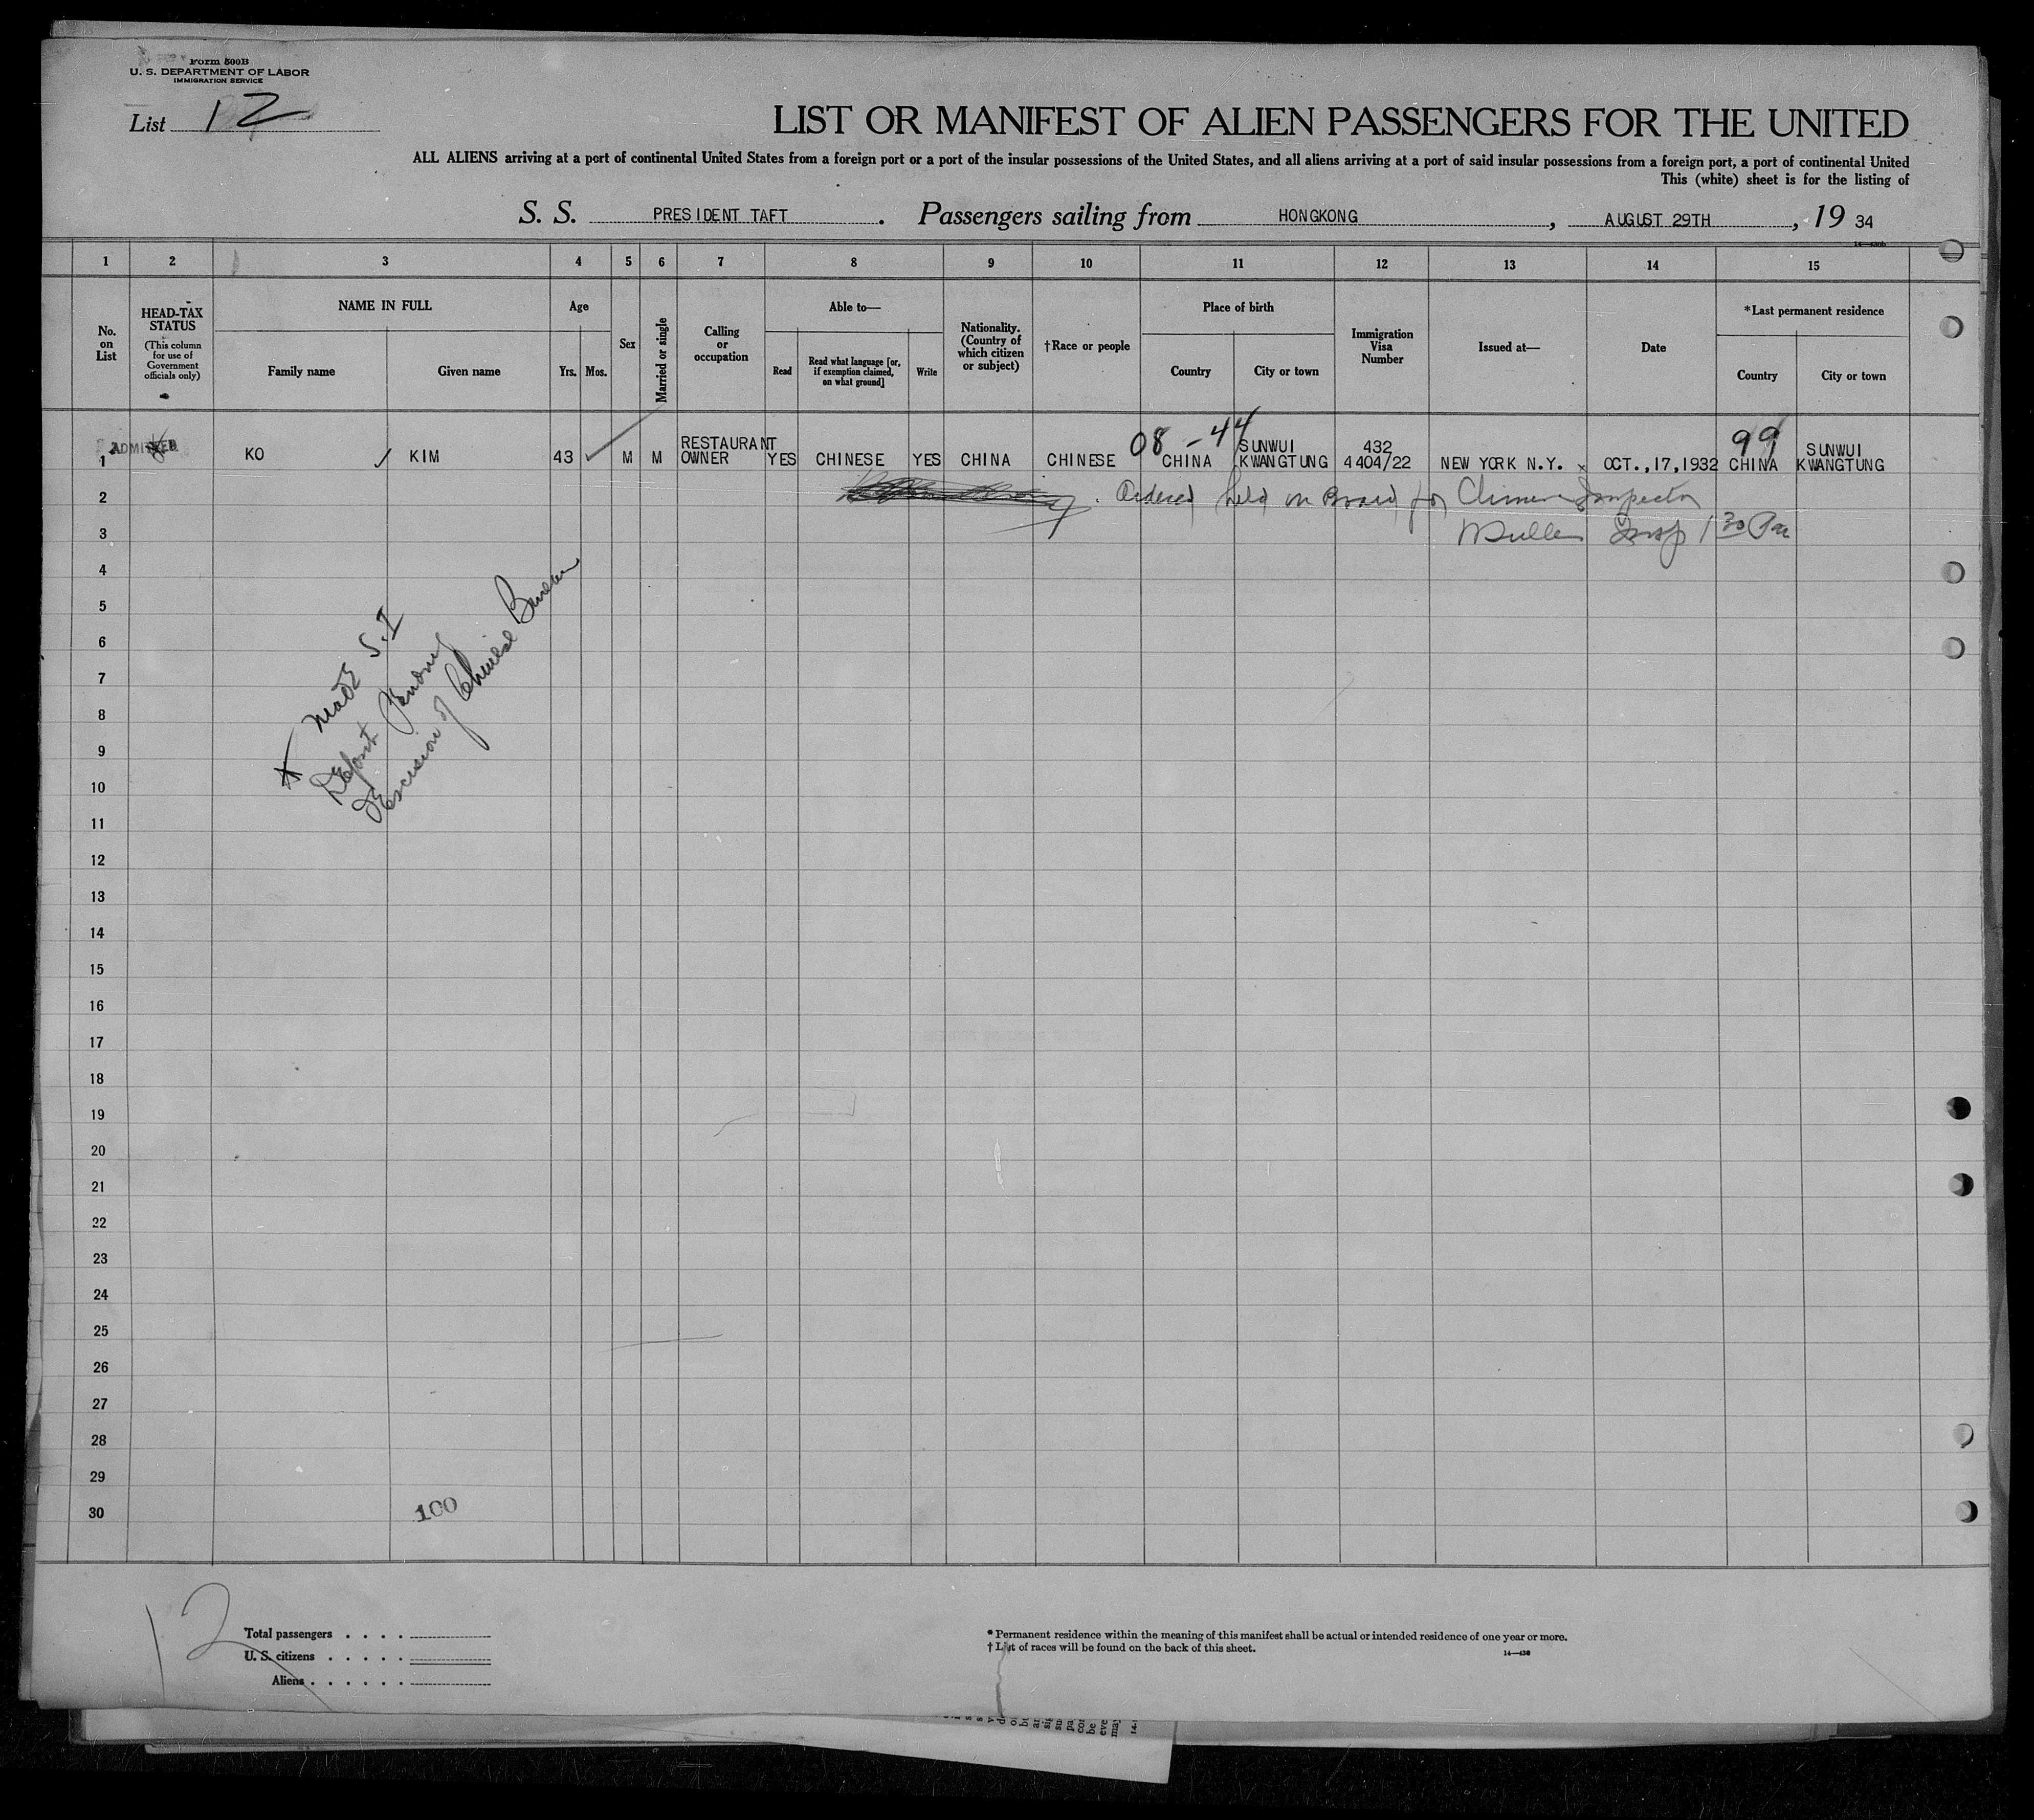 Form 500B
U. S. DEPARTMENT OF LABOR
IMMIGRATION SERVICE
List 12
LIST OR MANIFEST OF ALIEN PASSENGERS FOR THE UNITED
ALL ALIENS arriving at a port of continental United States from a foreign port or a port of the insular possessions of the United States, and all aliens arriving at a port of said insular possessions from a foreign port, a port of continental United
This (white) sheet is for the listing of
S. S. PRESIDENT TAFT. Passengers sailing from HONGKONG, AUGUST 29TH, 19 34
1 2 3 4 5 6 7 8 9 10 11 12 13 14 15
No. on List
HEAD-TAX STATUS
(This column for use of Government officials only)
NAME IN FULL
Family name Given name
Age
Yrs. Mos.
Sex
Married or single
Calling or occupation
Able to—
Read
Read what language [or, if exemption claimed, on what ground]
Write
Nationality. (Country of which citizen or subject)
†Race or people
Place of birth
Country City or town
Immigration Visa Number
Issued at—
Date
*Last permanent residence
Country City or town
08 -44 99
1 ADMITTED KO KIM 43 M M RESTAURANT OWNER YES CHINESE YES CHINA CHINESE CHINA SUNWUI KWANGTUNG 432 4404/22 NEW YORK N.Y. OCT.,17,1932 CHINA SUNWUI KWANGTUNG
2 Ordered held on Board for Chinese Inspector
3 Insp 1 30 Pm
4
5
6
7
8
9
10
11
12
13
14
15
16
17
18
19
20
21
22
23
24
25
26
27
28
29
30
Made S.I
pending
Decision of Chinese Bureau
100
12
Total passengers
U. S. citizens
Aliens
* Permanent residence within the meaning of this manifest shall be actual or intended residence of one year or more.
† List of races will be found on the back of this sheet.
14—430